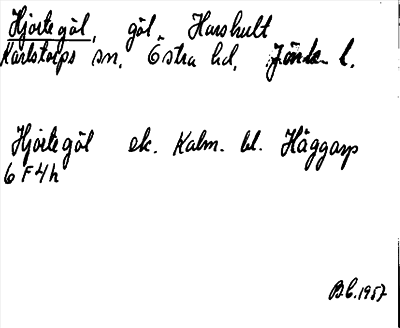 Hjortegöl, göl, Harshult
Karlstorps sn. Östra hd, Jönk. l.
Hjortegöl ek. Kalm. bl. Häggarp
6 F 4 h
B.C. 1957